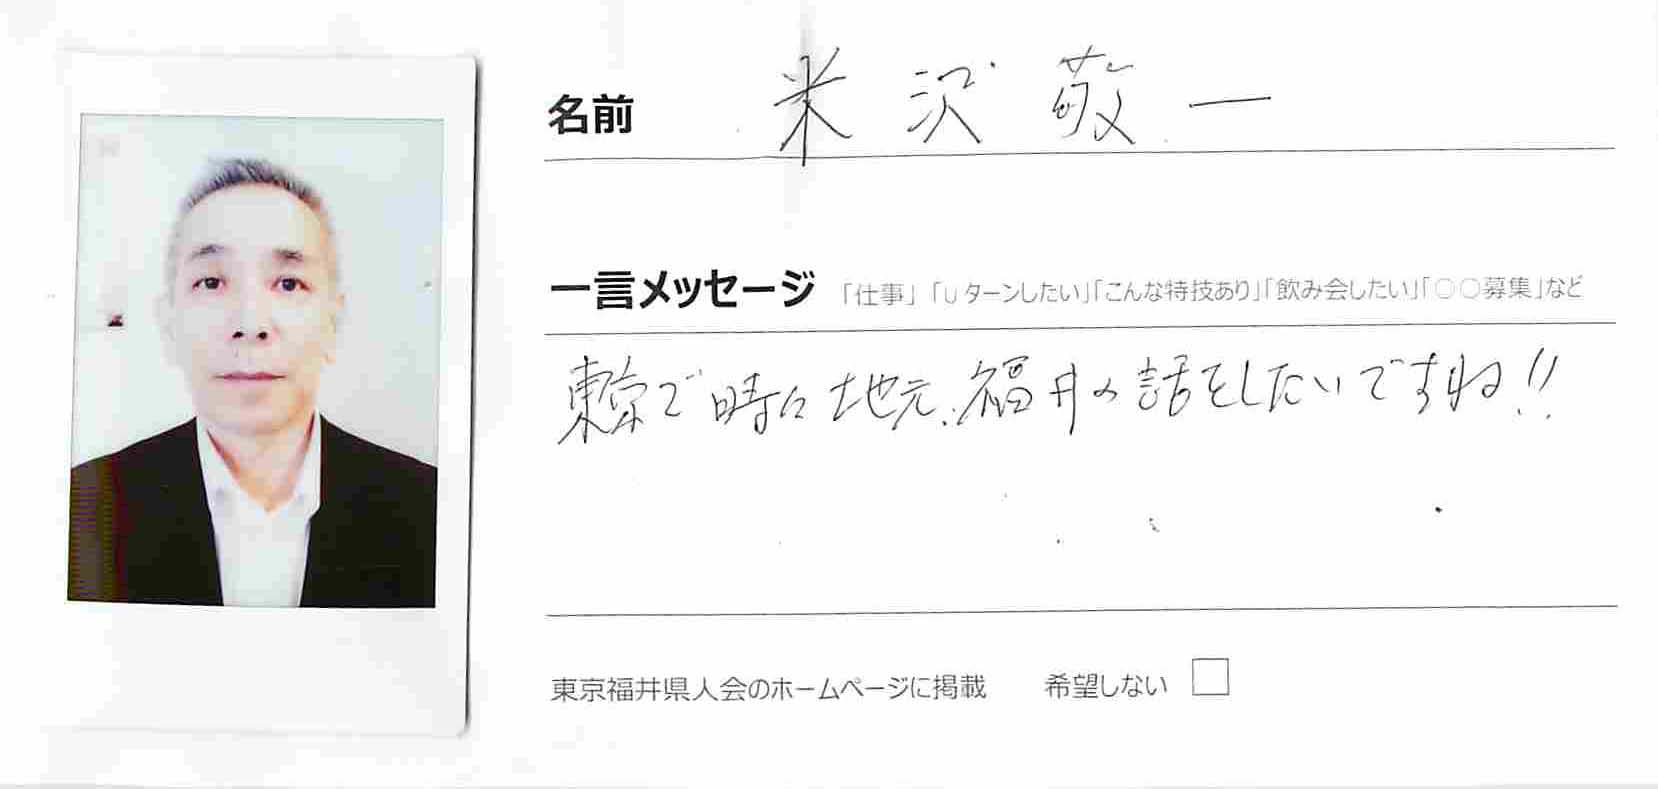 名前 米沢敬一
一言メッセージ 「仕事」「Uターンしたい」「こんな特技あり」「飲み会したい」「○○募集」など
東京で時々地元、福井の話をしたいですね!!
東京福井県人会のホームページに掲載 希望しない □